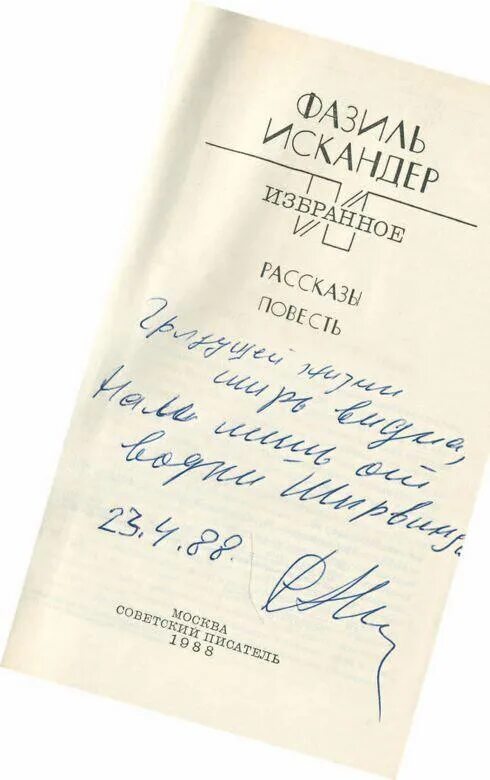 ФАЗИЛЬ
ИСКАНДЕР
ИЗБРАННОЕ
РАССКАЗЫ
ПОВЕСТЬ
Грядущей жизни
ширь видна,
Нам лишь от
водки Ширвинд
23.4.88.
МОСКВА
СОВЕТСКИЙ ПИСАТЕЛЬ
1988